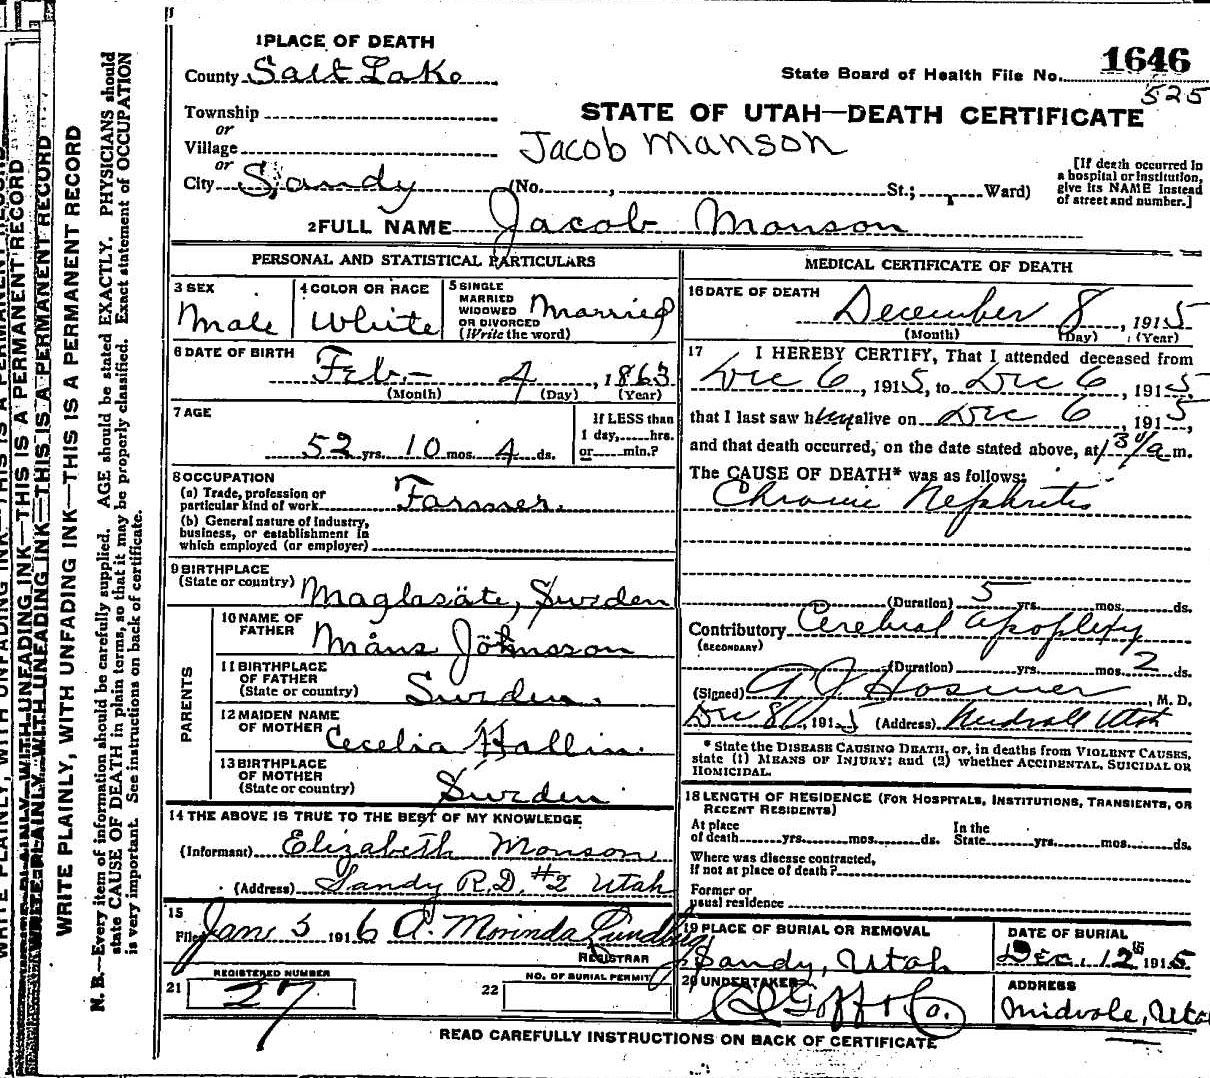 1 PLACE OF DEATH
County Salt Lake
State Board of Health File No. 1646
525
Township
or
Village
or
City Sandy (No. , St.; Ward)
STATE OF UTAH—DEATH CERTIFICATE
Jacob Manson
[If death occurred in
a hospital or institution,
give its NAME instead
of street and number.]
2 FULL NAME Jacob Manson
PERSONAL AND STATISTICAL PARTICULARS
3 SEX
Male
4 COLOR OR RACE
White
5 SINGLE
MARRIED
WIDOWED
OR DIVORCED
(Write the word)
Married
6 DATE OF BIRTH
Feb.— 4, 1863
(Month) (Day) (Year)
7 AGE
52 yrs. 10 mos. 4 ds.
If LESS than
1 day, hrs.
or min.?
8 OCCUPATION
(a) Trade, profession or
particular kind of work Farmer.
(b) General nature of industry,
business, or establishment in
which employed (or employer)
9 BIRTHPLACE
(State or country) Maglasäte, Sweden
PARENTS
10 NAME OF
FATHER Måns Jöhnsson
11 BIRTHPLACE
OF FATHER
(State or country) Sweden.
12 MAIDEN NAME
OF MOTHER Cecelia Hallin.
13 BIRTHPLACE
OF MOTHER
(State or country) Sweden.
14 THE ABOVE IS TRUE TO THE BEST OF MY KNOWLEDGE
(Informant) Elizabeth Monson
(Address) Sandy R.D. #2 Utah
15
Filed Jan 5 1916 A. Morinda Lundberg
REGISTRAR
REGISTERED NUMBER
21 27
NO. OF BURIAL PERMIT
22
MEDICAL CERTIFICATE OF DEATH
16 DATE OF DEATH
December 8, 1915
(Month) (Day) (Year)
17 I HEREBY CERTIFY, That I attended deceased from
Dec 6, 1915, to Dec 6, 1915
that I last saw him alive on Dec 6, 1915,
and that death occurred, on the date stated above, at 130 a m.
The CAUSE OF DEATH* was as follows:
Chronic Nephritis
(Duration) 5 yrs. mos. ds.
Contributory Cerebral apoplexy
(SECONDARY)
(Duration) yrs. mos. 2 ds.
(Signed) Hosmer, M. D.
Dec 8, 1915 (Address) Midvale Utah
* State the DISEASE CAUSING DEATH, or, in deaths from VIOLENT CAUSES,
state (1) MEANS OF INJURY; and (2) whether ACCIDENTAL, SUICIDAL OR
HOMICIDAL.
18 LENGTH OF RESIDENCE (FOR HOSPITALS, INSTITUTIONS, TRANSIENTS, OR
RECENT RESIDENTS)
At place
of death yrs. mos. ds.
In the
State yrs. mos. ds.
Where was disease contracted,
if not at place of death?
Former or
usual residence
19 PLACE OF BURIAL OR REMOVAL
Sandy, Utah
DATE OF BURIAL
Dec. 12th 1915
20 UNDERTAKER
Goff & Co.
ADDRESS
Midvale, Utah
READ CAREFULLY INSTRUCTIONS ON BACK OF CERTIFICATE
WRITE PLAINLY, WITH UNFADING INK—THIS IS A PERMANENT RECORD
N. B.—Every item of information should be carefully supplied. AGE should be stated EXACTLY. PHYSICIANS should
state CAUSE OF DEATH in plain terms, so that it may be properly classified. Exact statement of OCCUPATION
is very important. See instructions on back of certificate.